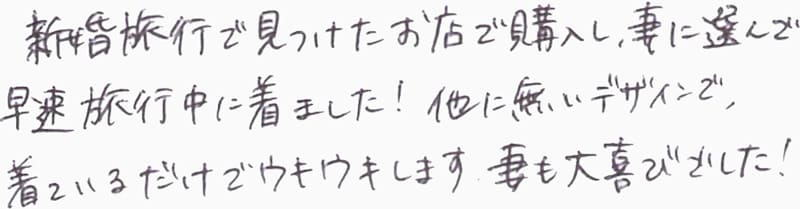 新婚旅行で見つけたお店で購入し、妻に選んで
早速旅行中に着ました！他に無いデザインで、
着ているだけでウキウキします。妻も大喜びでした！